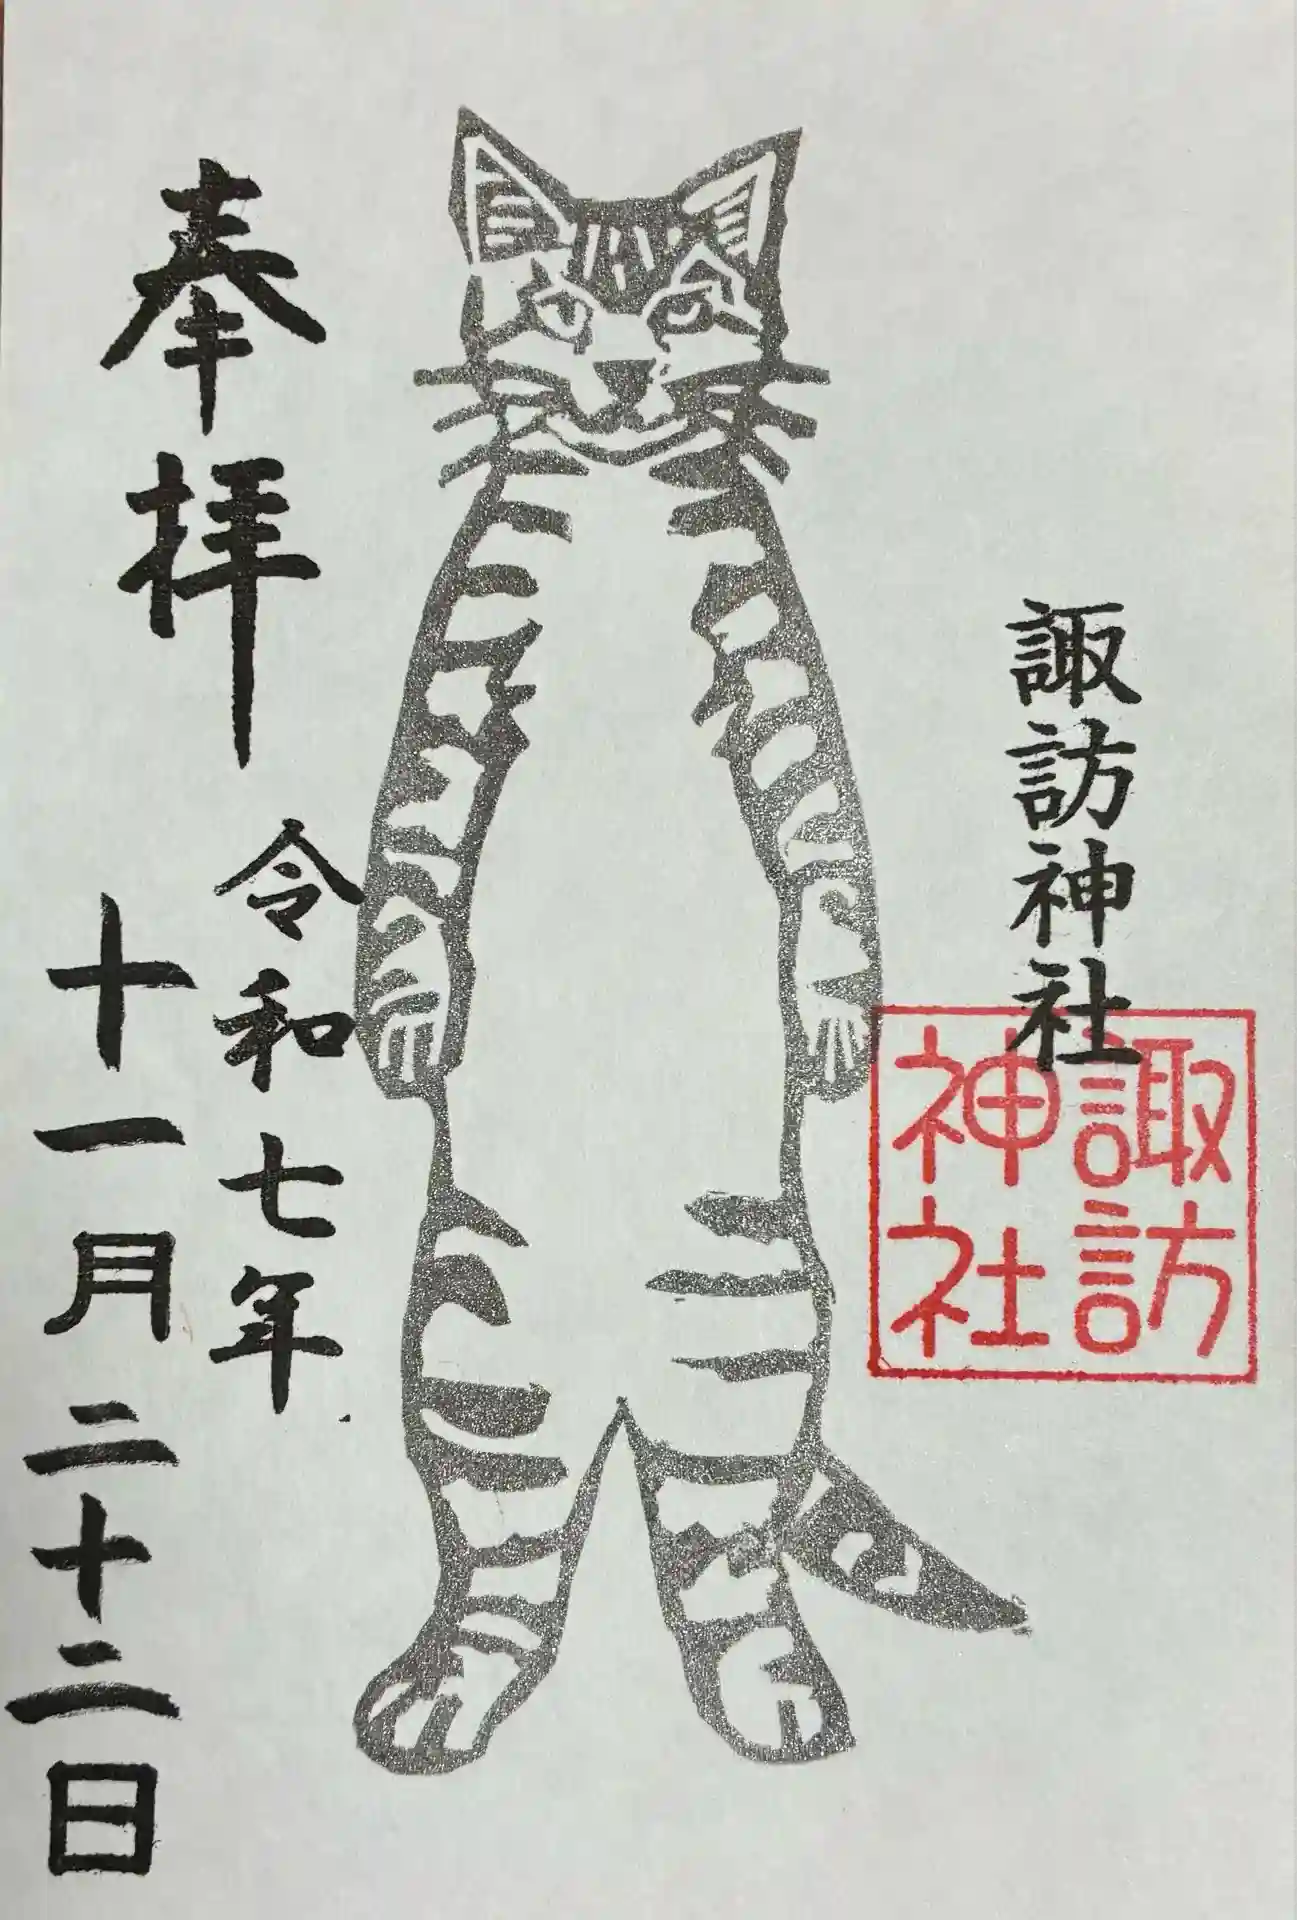 諏訪神社
諏訪
神社
奉拝
令和七年
十一月二十二日